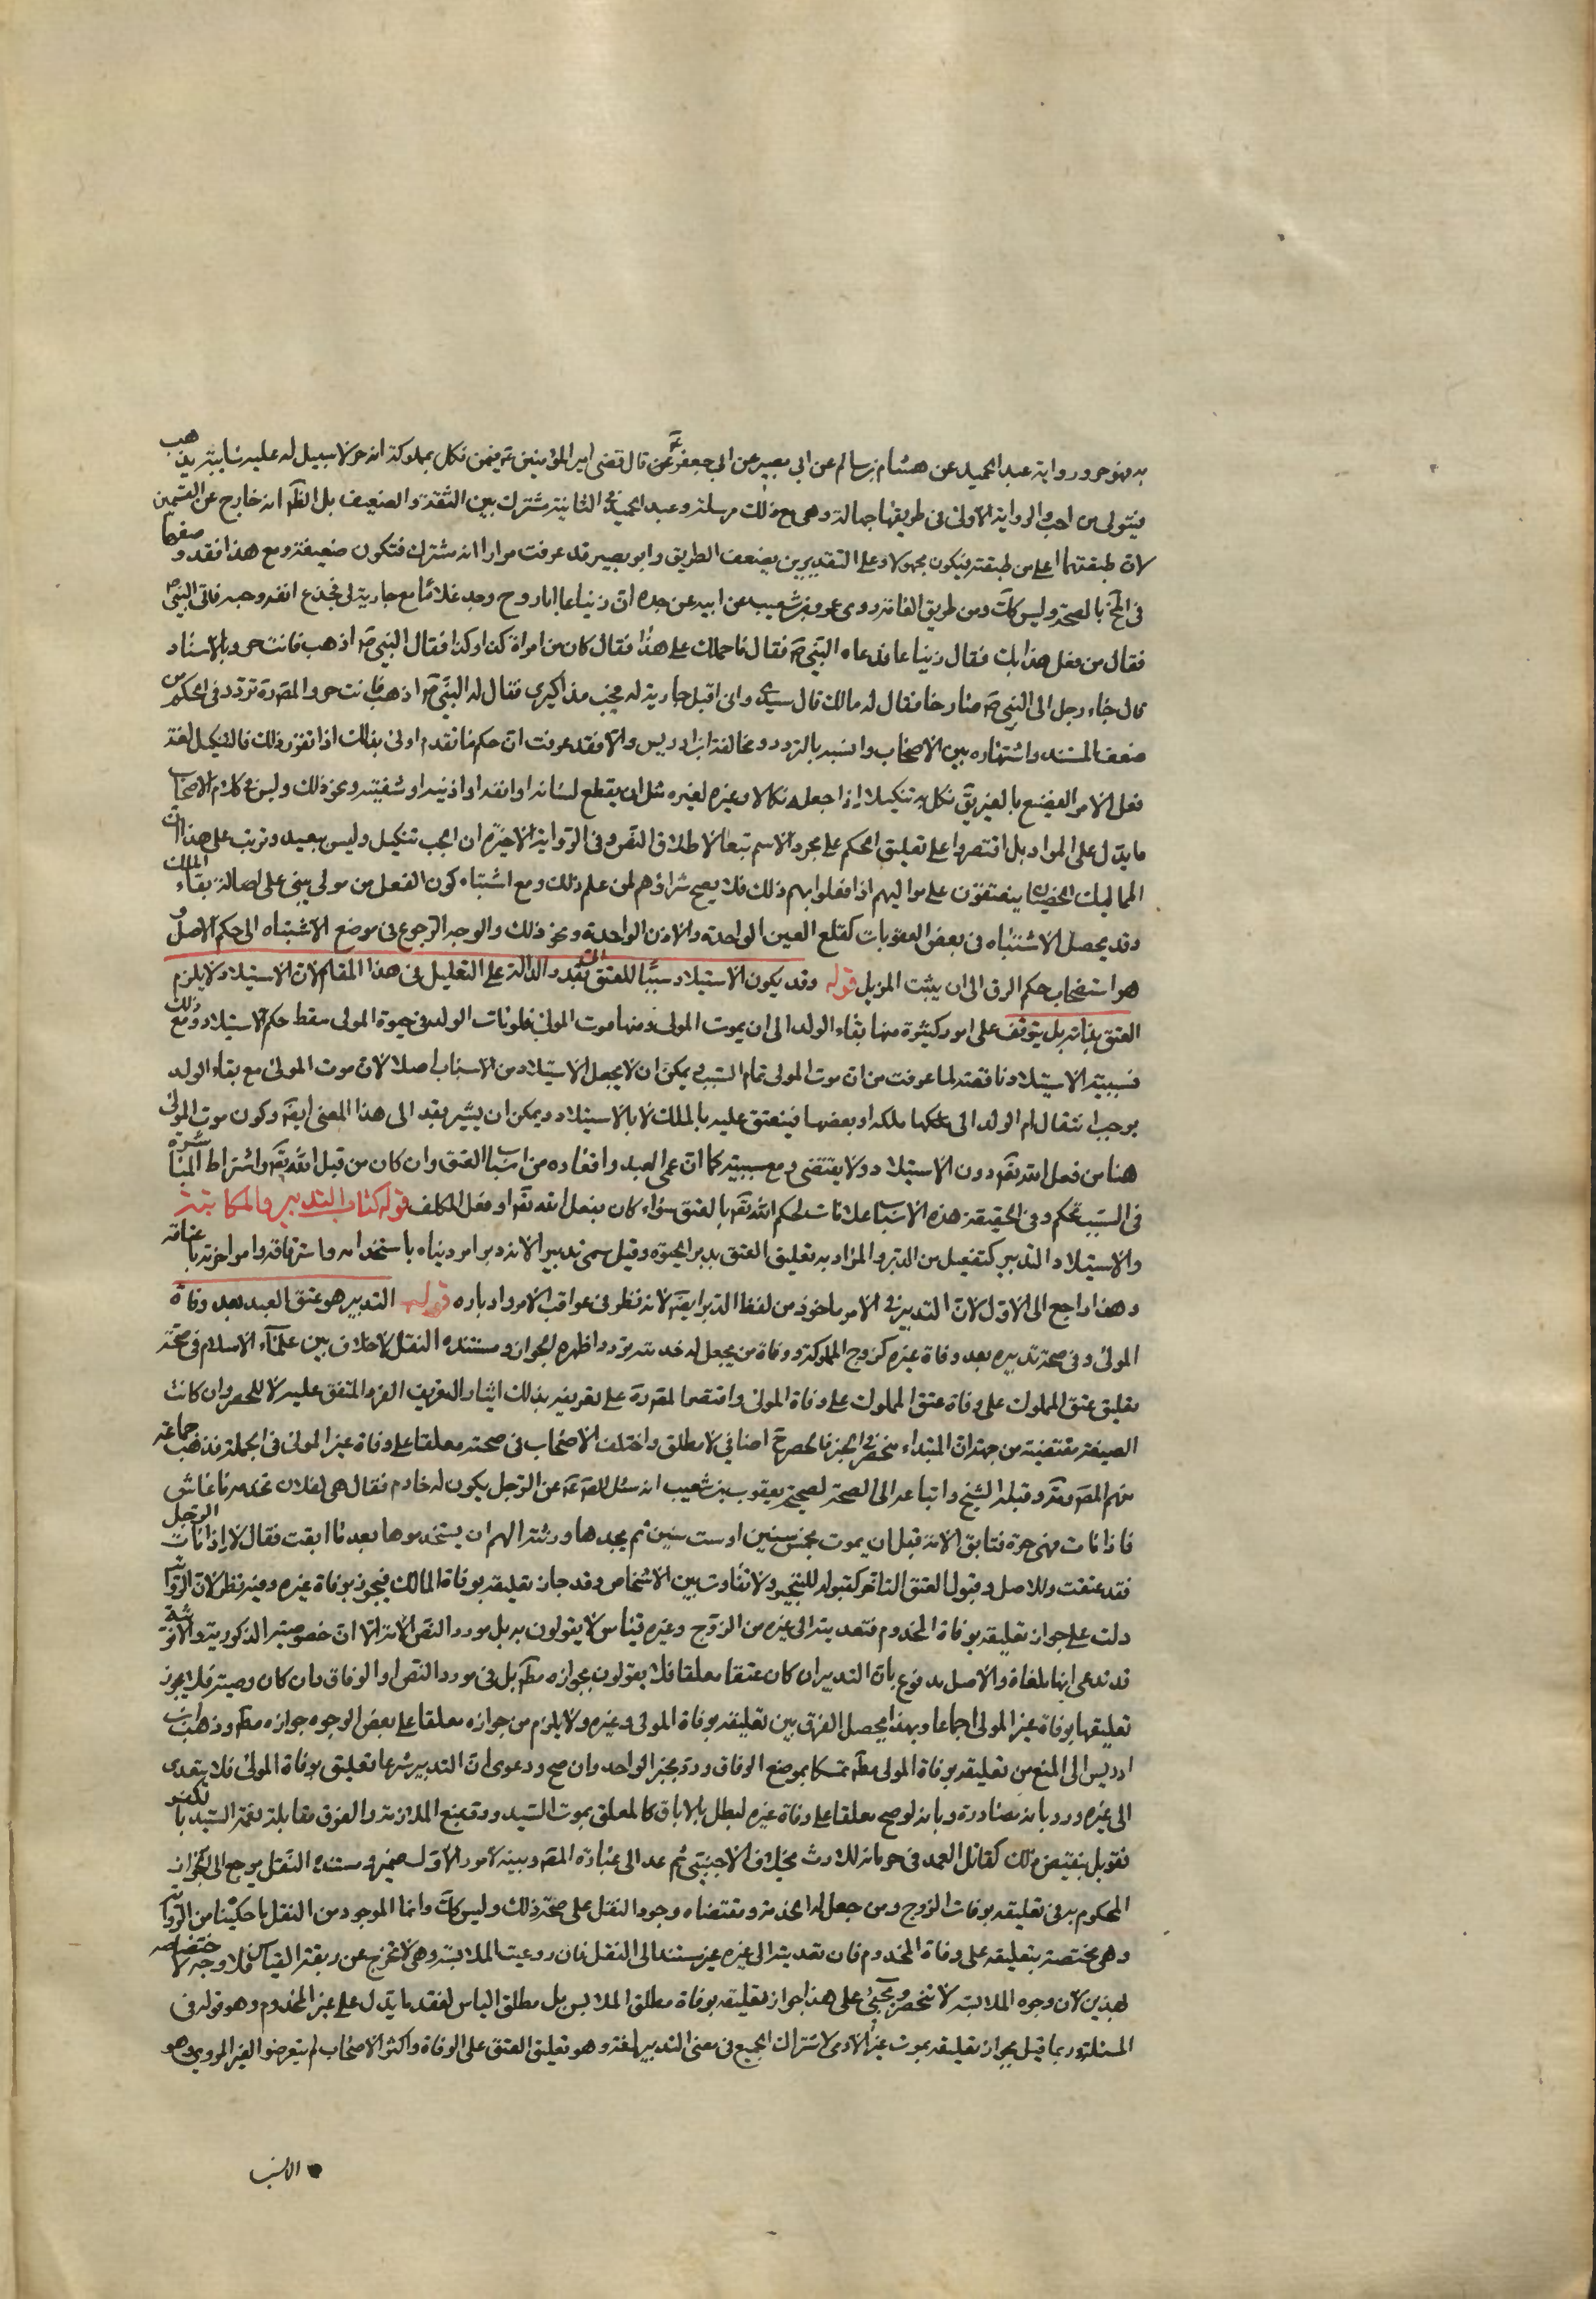 به فهو حر ورواية عبد الحميد عن هشام بن سالم عن ابي بصير عن ابي جعفر ع قال قضى امير المؤمنين ع فيمن نكل بمملوكه انه حر لا سبيل له عليه سايبة يذهب
فيتولى من احب والرواية الاولى في طريقها جهالة وهي مع ذلك مرسلة وعبد الحميد في الثانية مشترك بين الثقة والضعيف بل الظ انه خارج عن القسمين
لان طبقتهما اعلى من طبقته فيكون مجهولا وعلى التقديرين يضعف الطريق وابو بصير قد عرفت مرارا انه مشترك فتكون ضعيفة ومع هذا فقد وصفها
في المخ بالصحة وليس كك ومن طريق العامة روى عمرو بن شعيب عن ابيه عن جده ان زنباعا ابا روح وجد غلاما مع جارية له فجدع انفه وجبه فاتى النبي ص
فقال من فعل هذا بك فقال زنباعا فدعاه النبي ص فقال ما حملك على هذا فقال كان من امرأة كذا وكذا فقال النبي ص اذهب فانت حر وبالاسناد
قال جاء رجل الى النبي ص صارخا فقال له مالك قال سيدي رانى اقبل جارية له فجب مذاكيرى فقال له النبي ص اذهب فانت حر والمص ره تردد في الحكم من
ضعف المستند واشتهاره بين الاصحاب وانسبه بالتردد ومخالفة ابن ادريس والا فقد عرفت ان حكم ما تقدم اولى بذلك اذا تقرر ذلك فالتنكيل لغة
فعل الامر الفضيع بالغير يق نكل به تنكيلا اذا جعله نكالا وعبرة لغيره مثل ان يقطع لسانه او انفه او اذنيه او شفتيه ونحو ذلك وليس في كلام الاصحاب
ما يدل على المراد بل اقتصروا على تعليق الحكم على مجرد الاسم تبعا لاطلاق النص وفي الرواية الاخيرة ان الجب تنكيل وليس ببعيد وترتب على هذا ان
المماليك الخصيان ينعتقون على مواليهم اذا فعلوا بهم ذلك فلا يصح شراؤهم لمن علم ذلك ومع اشتباه كون الفعل من مولى يبنى على اصالة بقاء الملك
وقد يحصل الاشتباه في بعض العقوبات كقلع العين الواحدة والاذن الواحدة ونحو ذلك والوجه الرجوع في موضع الاشتباه الى حكم الاصل و
هو استصحاب حكم الرق الى ان يثبت المزيل قوله وقد يكون الاستيلاد سببا للعتق الخ بقد الدالة على التقليل في هذا المقام لان الاستيلاد لا يلزم
العتق بذاته بل يتوقف على امور كثيرة منها بقاء الولد الى ان يموت المولى ومنها موت المولى فلو مات الولد في حيوة المولى سقط حكم الاستيلاد ومع ذلك
فسببية الاستيلاد ناقصة لما عرفت من ان موت المولى تمام السبب ويمكن ان لا يجعل الاستيلاد من الاسباب اصلا لان موت المولى مع بقاء الولد
يوجب انتقال ام الولد الى ملكه او بعضها فينعتق عليه بالملك لا بالاستيلاد ويمكن ان يشير بقد الى هذا المعنى ايضا وكون موت المولى
هنا من فعل الله تعالى دون الاستيلاد ولا يقتضي دفع سببيته كما ان عمى العبد واقعاده من اسباب العتق وان كان من قبل الله تعالى واشتراط المباشرة
في السبب تحكم وفي الحقيقة هذه الاسباب علامات لحكم الله تعالى بالعتق سواء كان بفعل الله تعالى او فعل المكلف قوله كتاب التدبير والمكاتبة
والاستيلاد التدبير كتفعيل من الدبر والمراد به تعليق العتق بدبر الحيوة وقيل سمي تدبيرا لانه دبر امر دنياه باستخدامه واسترقاقه وامر اخرته باعتاقه
وهذا راجع الى الاول لان التدبير في الامر ماخوذ من لفظ الدبر ايضا لانه نظر في عواقب الامر وادباره قوله التدبير هو عتق العبد بعد وفاة
المولى وفي صحة تدبيره بعد وفاة غيره كزوج المملوكة ووفاة من يجعل له خدمته تردد اظهره الجواز ومستنده النقل لا خلاف بين علماء الاسلام في صحة
تعليق عتق المملوك على وفاة المولى واقتصر المصنف على تعريفه بذلك ايثار التعريف الفرد المتفق عليه لا للحصر وان كانت
الصيغة مقتضية من جهة ان المبتداء منحصر في الخبر فالحصر ح اضافي لا مطلق واختلف الاصحاب في صحته معلقا على وفاة غير المولى في الجملة فذهب جماعة
منهم المصنف وقبله الشيخ واتباعه الى الصحة لصحيحة يعقوب بن شعيب انه سئل الصادق ع عن الرجل يكون له خادم فقال هي لفلان تخدمه ما عاش
فاذا مات فهي حرة فتابق الامة قبل ان يموت بخمس سنين او ست سنين ثم يجدها ورثته الهم ان يستخدموها بعد ما ابقت فقال لا اذا مات الرجل
فقد عتقت وللاصل وقبول العتق التاخير كقبوله للتنجيز ولا تفاوت بين الاشخاص وقد جاز تعليقه بوفاة المالك فيجوز بوفاة غيره وفيه نظر لان الرواية
دلت على جواز تعليقه بوفاة المخدوم فتعديته الى غيره من الزوج وغيره قياس لا يقولون به بل مورد النص الامة الا ان خصوصية الذكورية والانوثة
قد ندعى انها ملغاة والاصل مدفوع بان التدبير ان كان عتقا معلقا فلا يقولون بجوازه مط بل في مورد النص او الوفاق وان كان وصية فلا يجوز
تعليقها بوفاة غير المولى اجماعا وبهذا يحصل الفرق بين تعليقه بوفاة المولى وغيره ولا يلزم من جوازه معلقا على بعض الوجوه جوازه مط وذهب ابن
ادريس الى المنع من تعليقه بوفاة المولى مط تمسكا بموضع الوفاق ورد بخبر الواحد وان صح ودعوى ان التدبير شرعا تعليق بوفاة المولى فلا يتعدى
الى غيره ورد بانه مصادرة وبانه لو صح معلقا على وفاة غيره لبطل بالاباق كالمعلق بموت السيد ورد بمنع الملازمة والفرق مقابلة نعمة السيد بالكفر
فقوبل بنقيض ذلك كقاتل العمد في حرمانه للارث بخلاف الاجنبي ثم عد الى عبارة المصنف وبينه لامور الاول ضمير ومستنده النقل يرجع الى الجواز
المحكوم به في تعليقه بوفات الزوج ومن جعل له الخدمة ومقتضاه وجود النقل على صحة ذلك وليس كك وانما الموجود من النقل ما حكيناه من الرواية
وهي مختصة بتعليقه على وفاة المخدوم فان تعديته الى غيره غير مستند الى النقل فان روعيت الملابسة وهي لا تخرج عن ربقة القياس فلا وجه لاختصاصه
بهذين لان وجوه الملابسة لا تنحصر ويجيئ على هذا جواز تعليقه بوفاة مطلق الملابس بل مطلق الناس لفقد ما يدل على غير المخدوم وهو قوله في
المسئلة وربما قيل بجواز تعليقه بموت غير الادمى لاشتراك الجميع في معنى التدبير لغة وهو تعليق العتق على الوفاة واكثر الاصحاب لم يتعرضوا لغير المروي وهو
الانسب